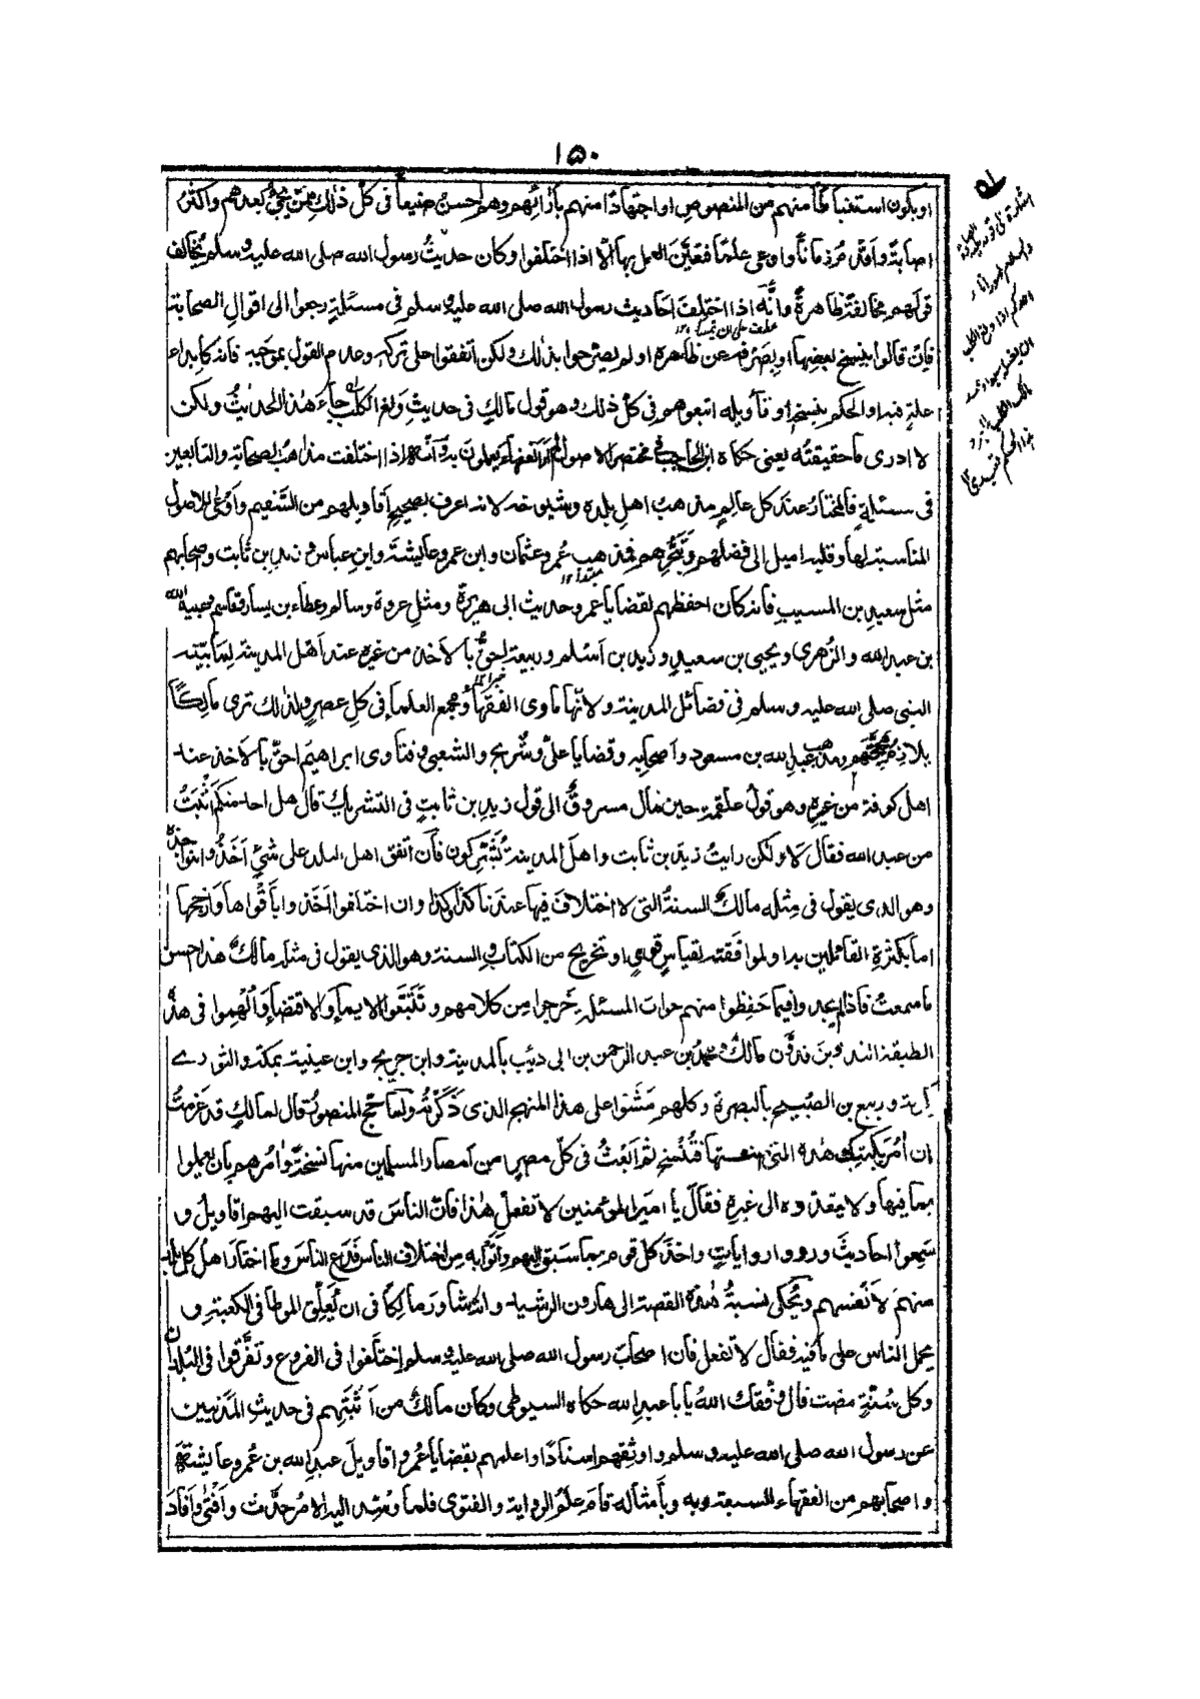 ١٥٠
او يكون استنباطا منهم من المنصوص او اجتهادًا منهم بآرائهم وهم احسن صنيعا فى كل ذلك ممن يجئ بعدهم واكثر
اصابة واقدم زمانا واوعى علما فتعين العمل بها الا اذا اختلفوا وكان حديث رسول الله صلى الله عليه وسلم يخالف
قولهم مخالفة ظاهرة وانه اذا اختلفت احاديث رسول الله صلى الله عليه وسلم فى مسئلة رجعوا الى اقوال الصحابة
فان قالوا بنسخ بعضها او بصرفه عن ظاهره او لم يصرحوا بذلك ولكن اتفقوا على تركه وعدم القول بموجبه فانه كابداء
علة فيه او الحكم بنسخه او تأويله اتبعوهم فى كل ذلك وهو قول مالك فى حديث ولغ الكلب جاء هذا الحديث ولكن
لا ادرى ما حقيقته يعنى حكاه ابن الحاجب فى مختصر الاصول لم ار الفقهاء يعملون به وانه اذا اختلفت مذاهب الصحابة والتابعين
فى مسئلة فالمختار عند كل عالم مذهب اهل بلده وشيوخه لانه اعرف بصحيح اقاويلهم من السقيم واوعى للاصول
المناسبة لها وقلبه اميل الى فضلهم وتبحرهم فمذهب عمر وعثمان وابن عمر وعايشة وابن عباس وزيد بن ثابت وصحابهم
مثل سعيد بن المسيب فانه كان احفظهم لقضايا عمر وحديث ابى هريرة ومثل عروة وسالم وعطاء بن يسار وقاسم وعبيد الله
بن عبد الله والزهرى ويحيى بن سعيد وزيد بن اسلم وربيعة احق بالاخذ من غيره عند اهل المدينة لما بينه
النبى صلى الله عليه وسلم فى فضائل المدينة ولانها ماوى الفقهاء ومجمع العلماء فى كل عصر ولذلك ترى مالكا
يلازم محجتهم ومذهب عبد الله بن مسعود واصحابه وقضايا على وشريح والشعبى وفتاوى ابراهيم احق بالاخذ عند
اهل كوفة من غيره وهو قول علقمة حين مال مسروق الى قول زيد بن ثابت فى التشريك قال هل احد منكم اثبت
من عبد الله فقال لا ولكن رايت زيد بن ثابت واهل المدينة يشركون فان اتفق اهل البلد على شئ اخذوا بنواجذه
وهو الذى يقول فى مثله مالك السنة التى لا اختلاف فيها عندنا كذا وكذا وان اختلفوا اخذوا باقواها وارجحها
اما بكثرة القائلين به او لموافقته لقياس قوى او تخريج من الكتاب والسنة وهو الذى يقول فى مثله مالك هذا احسن
ما سمعت فاذا لم يجدوا فيما حفظوا منهم جواب المسئلة خرجوا من كلامهم وتتبعوا الايماء والاقتضاء والهموا فى هذه
الطبقة التدوين فدون مالك ومحمد بن عبد الرحمن بن ابى ذئب بالمدينة وابن جريج وابن عيينة بمكة والثورے
وربيع بن الصبيح بالبصرة وكلهم مشوا على هذا المنهج الذى ذكرته ولما حج المنصور قال لمالك قد عزمت
ان آمر بكتبك هذه التى وضعتها فتنسخ ثم ابعث فى كل مصر من امصار المسلمين منها نسخة وآمرهم بان يعملوا
بما فيها ولا يتعدوه الى غيره فقال يا امير المؤمنين لا تفعل هذا فان الناس قد سبقت اليهم اقاويل و
سمعوا احاديث ورووا روايات واخذ كل قوم بما سبق اليهم واتوا به من اختلاف الناس فدع الناس وما اختار اهل كل بلد
منهم لانفسهم ويحكى نسبة هذه القصة الى هارون الرشيد وانه شاور مالكا فى ان يعلق الموطا فى الكعبة و
يحمل الناس على ما فيه فقال لا تفعل فان اصحاب رسول الله صلى الله عليه وسلم اختلفوا فى الفروع وتفرقوا فى البلدان
وكل سنة مضت قال وفقك الله يا با عبد الله حكاه السيوطى وكان مالك من اثبتهم فى حديث المدنيين
عن رسول الله صلى الله عليه وسلم واوثقهم اسنادا واعلمهم بقضايا عمر واقاويل عبد الله بن عمر وعايشة
واصحابهم من الفقهاء السبعة وبه وبامثاله قام علم الرواية والفتوى فلما وسد اليه الامر حدث وافتى وافاد